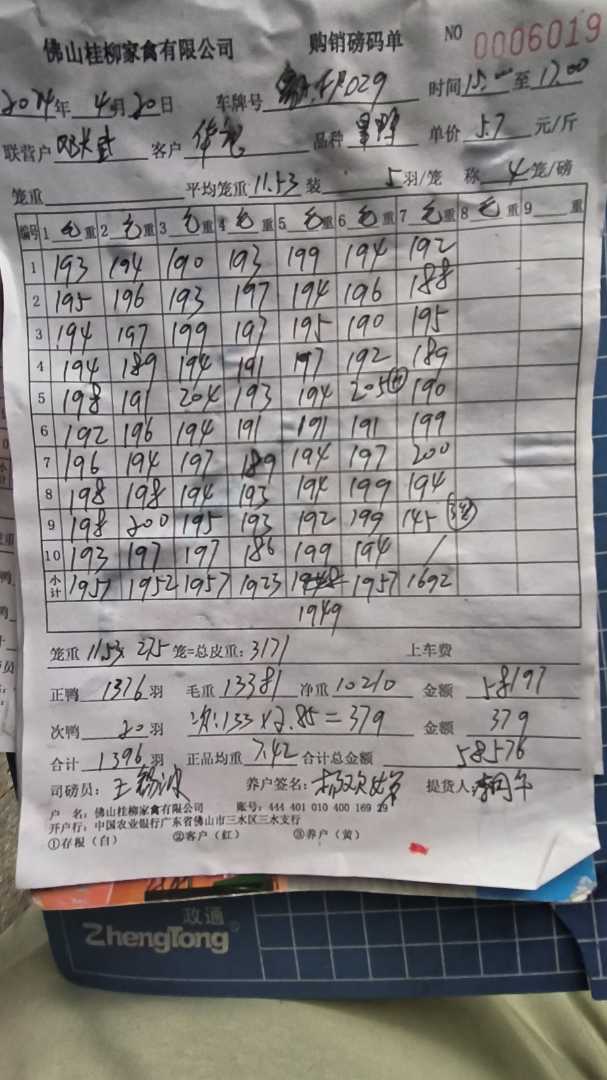 佛山桂柳家禽有限公司 购销磅码单 NO 0006019
2024年 4月20日 车牌号 029 时间15:00至17:00
联营户 客户 品种 单价 5.7 元/斤
笼重 平均笼重 11.53 装 5 羽/笼 称 4 笼/磅
编号 1 毛重 2 毛重 3 毛重 4 毛重 5 毛重 6 毛重 7 毛重 8 毛重 9 重
1 193 194 190 193 199 194 192
2 195 196 193 197 194 196 188
3 194 197 199 197 195 190 195
4 194 189 194 191 197 192 189
5 198 191 204 193 194 205 190
6 192 196 194 191 191 191 199
7 196 194 197 189 194 197 200
8 198 198 194 193 194 199 194
9 198 200 195 193 192 199 145
10 193 197 197 186 199 194 /
小计 1951 1952 1957 1923 1957 1692
1949
笼重 11.53 × 275 笼=总皮重:3171 上车费
正鸭 1376 羽 毛重 13381 净重 10210 金额 58197
次鸭 20 羽 次:133×2.85=379 金额 379
合计 1396 羽 正品均重 7.42 合计总金额 58576
司磅员: 养户签名: 提货人
户 名:佛山桂柳家禽有限公司 账号:444 401 010 400 169 29
开户行:中国农业银行广东省佛山市三水区三水支行
①存根(白) ②客户(红) ③养户(黄)
政通
ZhengTong